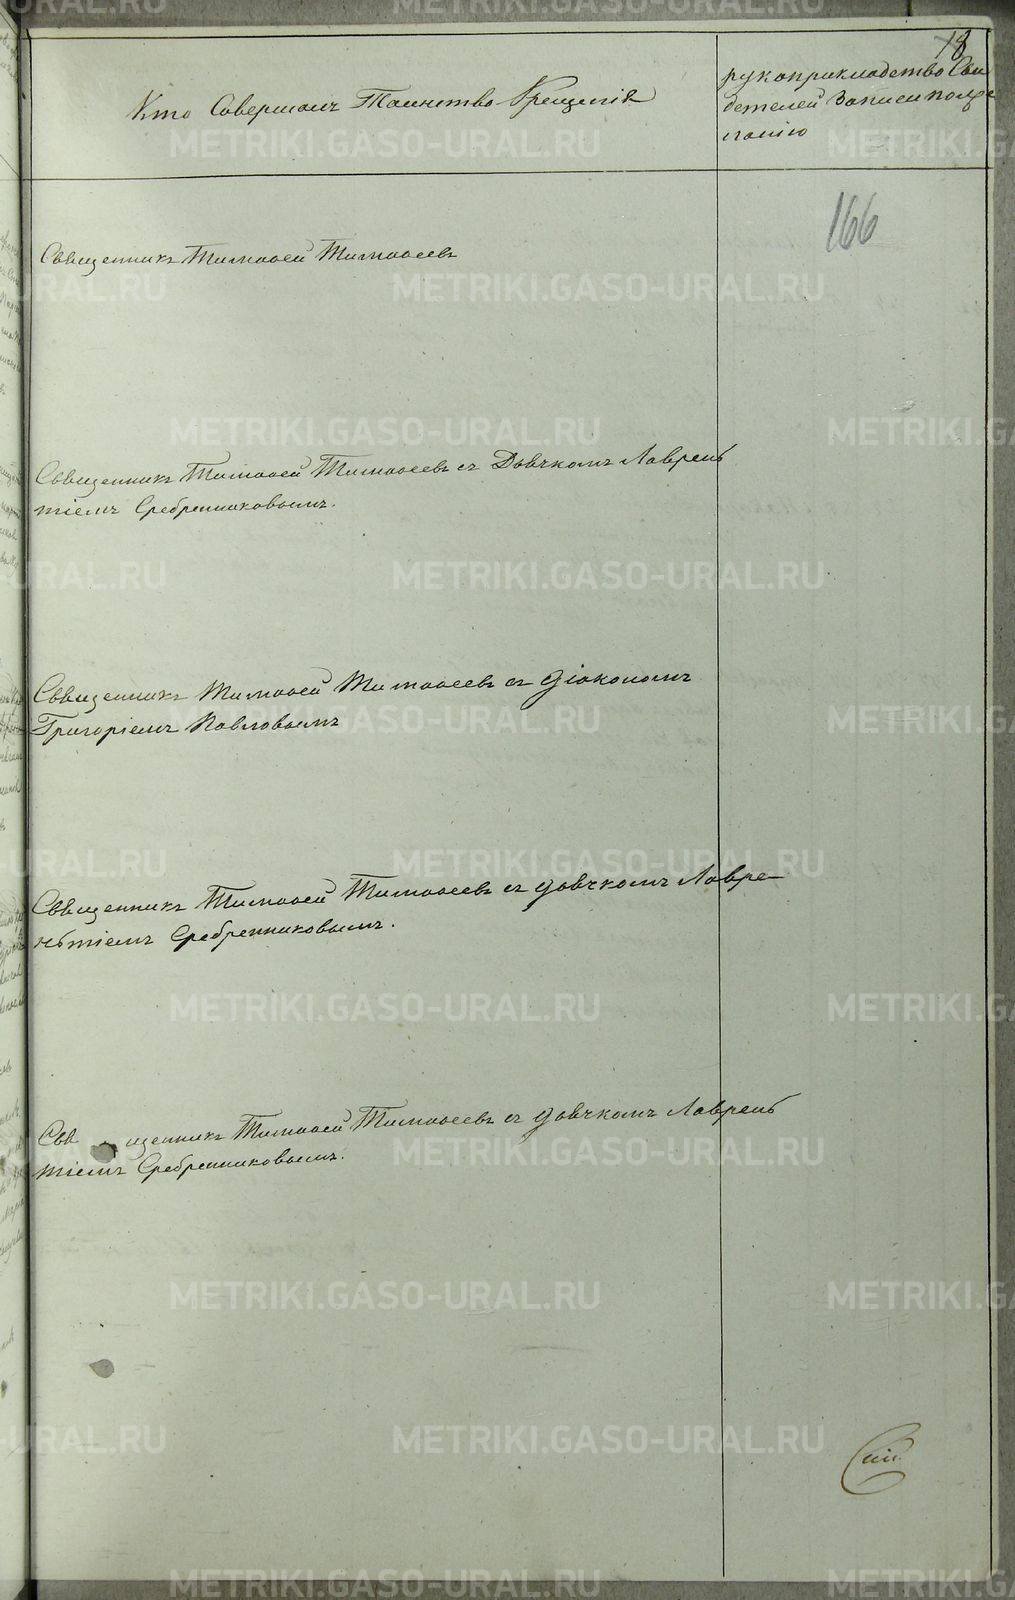 18
Кто Совершалъ Таинство Крещенія
рукоприкладство Сви
детелей Записи по же
ланію
166
Священникъ Тимоѳей Тимоѳеевъ
Священникъ Тимоѳей Тимоѳеевъ съ Дьячкомъ Лаврень
тіемъ Сребренниковымъ.
Священникъ Тимоѳей Тимоѳеевъ съ діакономъ
Григоріемъ Павловымъ
Священникъ Тимоѳей Тимоѳеевъ съ дьячкомъ Лавре-
ньтіемъ Сребренниковымъ.
Священникъ Тимоѳей Тимоѳеевъ съ дьячкомъ Лаврень
тіемъ Сребренниковымъ.
METRIKI.GASO-URAL.RU